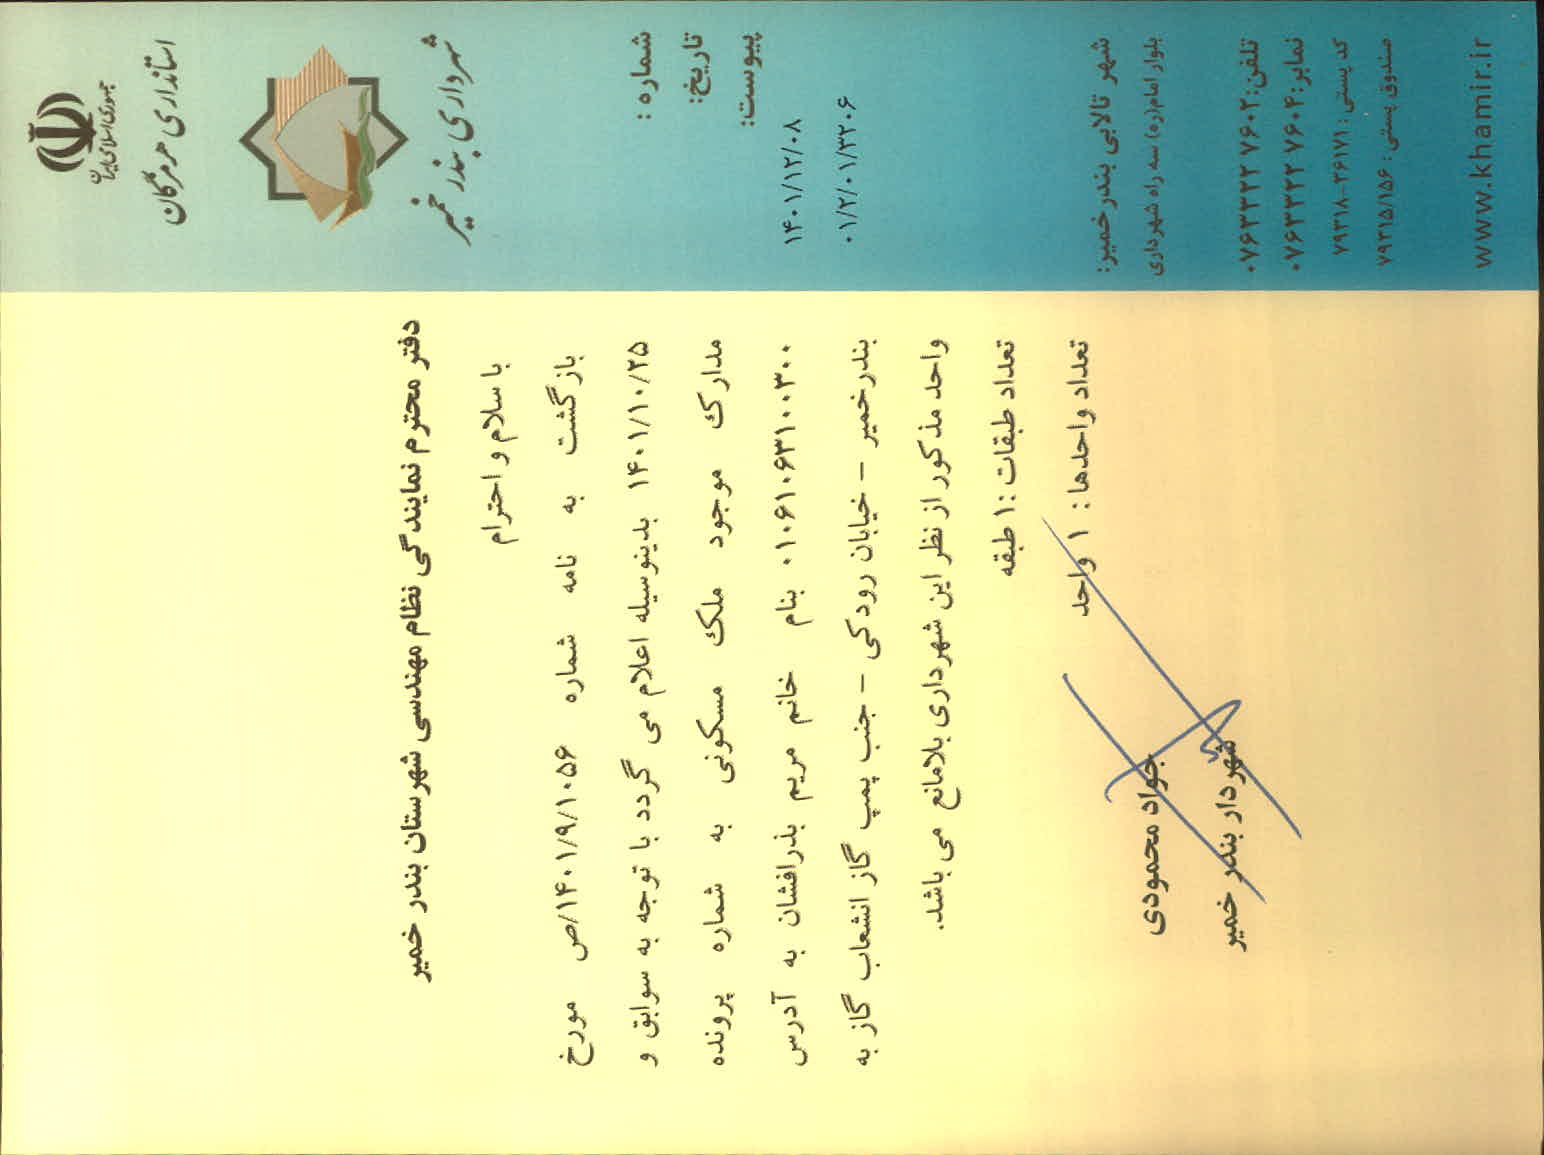 جمهوری اسلامی ایران
استانداری هرمزگان
شهرداری بندر خمیر
شماره :
تاریخ:
پیوست:
۱۴۰۱/۱۲/۰۸
۰۱/۲/۰۱/۳۲۰۶
شهر تالابی بندر خمیر:
بلوار امام(ره) سه راه شهرداری
تلفن: ۰۷۶۳۳۲۲ ۷۶۰۲
نمابر: ۰۷۶۳۳۲۲ ۷۶۰۴
کد پستی : ۷۹۳۱۸-۲۶۱۷۱
صندوق پستی : ۷۹۳۱۵/۱۵۶
www.khamir.ir
دفتر محترم نمایندگی نظام مهندسی شهرستان بندر خمیر
با سلام و احترام
بازگشت به نامه شماره ۱۴۰۱/۹/۱۰۵۶/ص مورخ
۱۴۰۱/۱۰/۲۵ بدینوسیله اعلام می گردد با توجه به سوابق و
مدارک موجود ملک مسکونی به شماره پرونده
۰۱۰۶۱۰۶۳۱۰۰۳۰۰ بنام خانم مریم بذرافشان به آدرس
بندرخمیر – خیابان رودکی – جنب پمپ گاز انشعاب گاز به
واحد مذکور از نظر این شهرداری بلامانع می باشد.
تعداد طبقات :۱ طبقه
تعداد واحدها : ۱ واحد
جواد محمودی
شهردار بندر خمیر